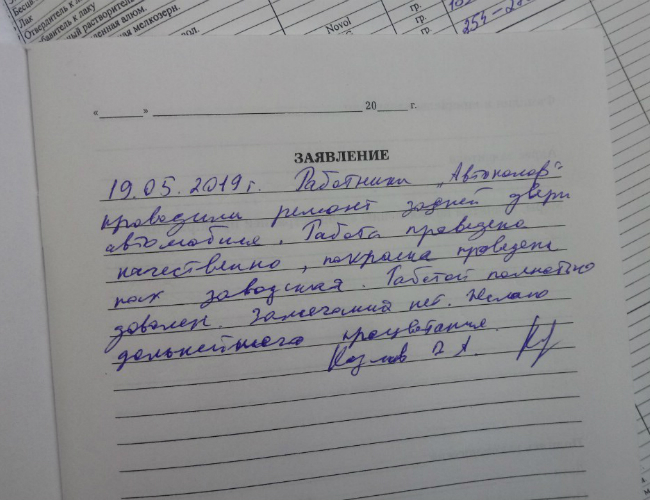 Отвердитель к л
бавитель к лаку
ный растворитель
енная алюм.
я мелкозерн.
Novol
гр.
гр.
гр.
254-2
« » 20 г.
ЗАЯВЛЕНИЕ
19.05.2019г. Работники „Автоколор“
проводили ремонт задней двери
автомобиля. Работа проведена
качественно, покраска проведена
как заводская. Работой полностью
доволен. Замечаний нет. Желаю
дальнейшего процветания.
Козлов А.